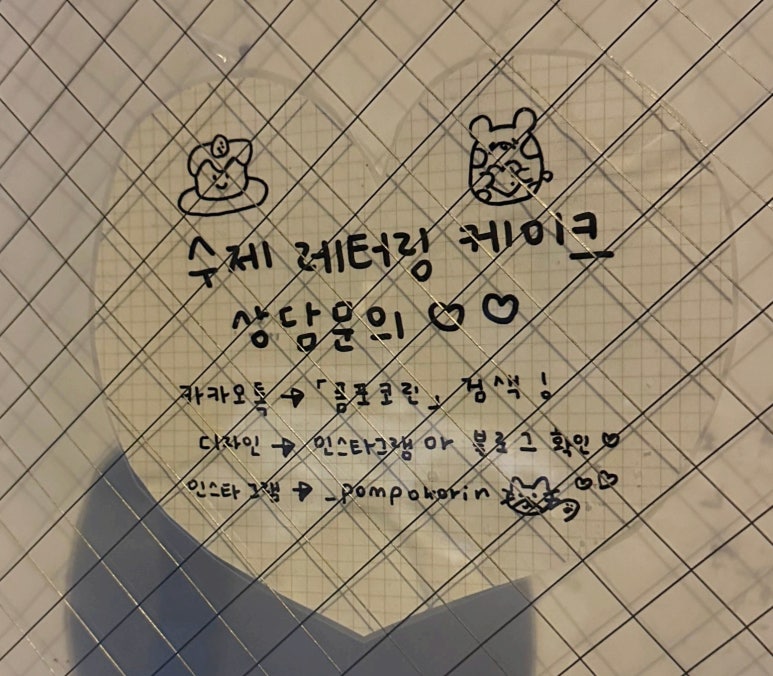 수제 레터링 케이크
상담문의 ♡ ♡
카카오톡 → 「폼포코린」 검색!
디자인 → 인스타그램 or 블로그 확인♡
인스타그램 → _pompokorin ♡♡